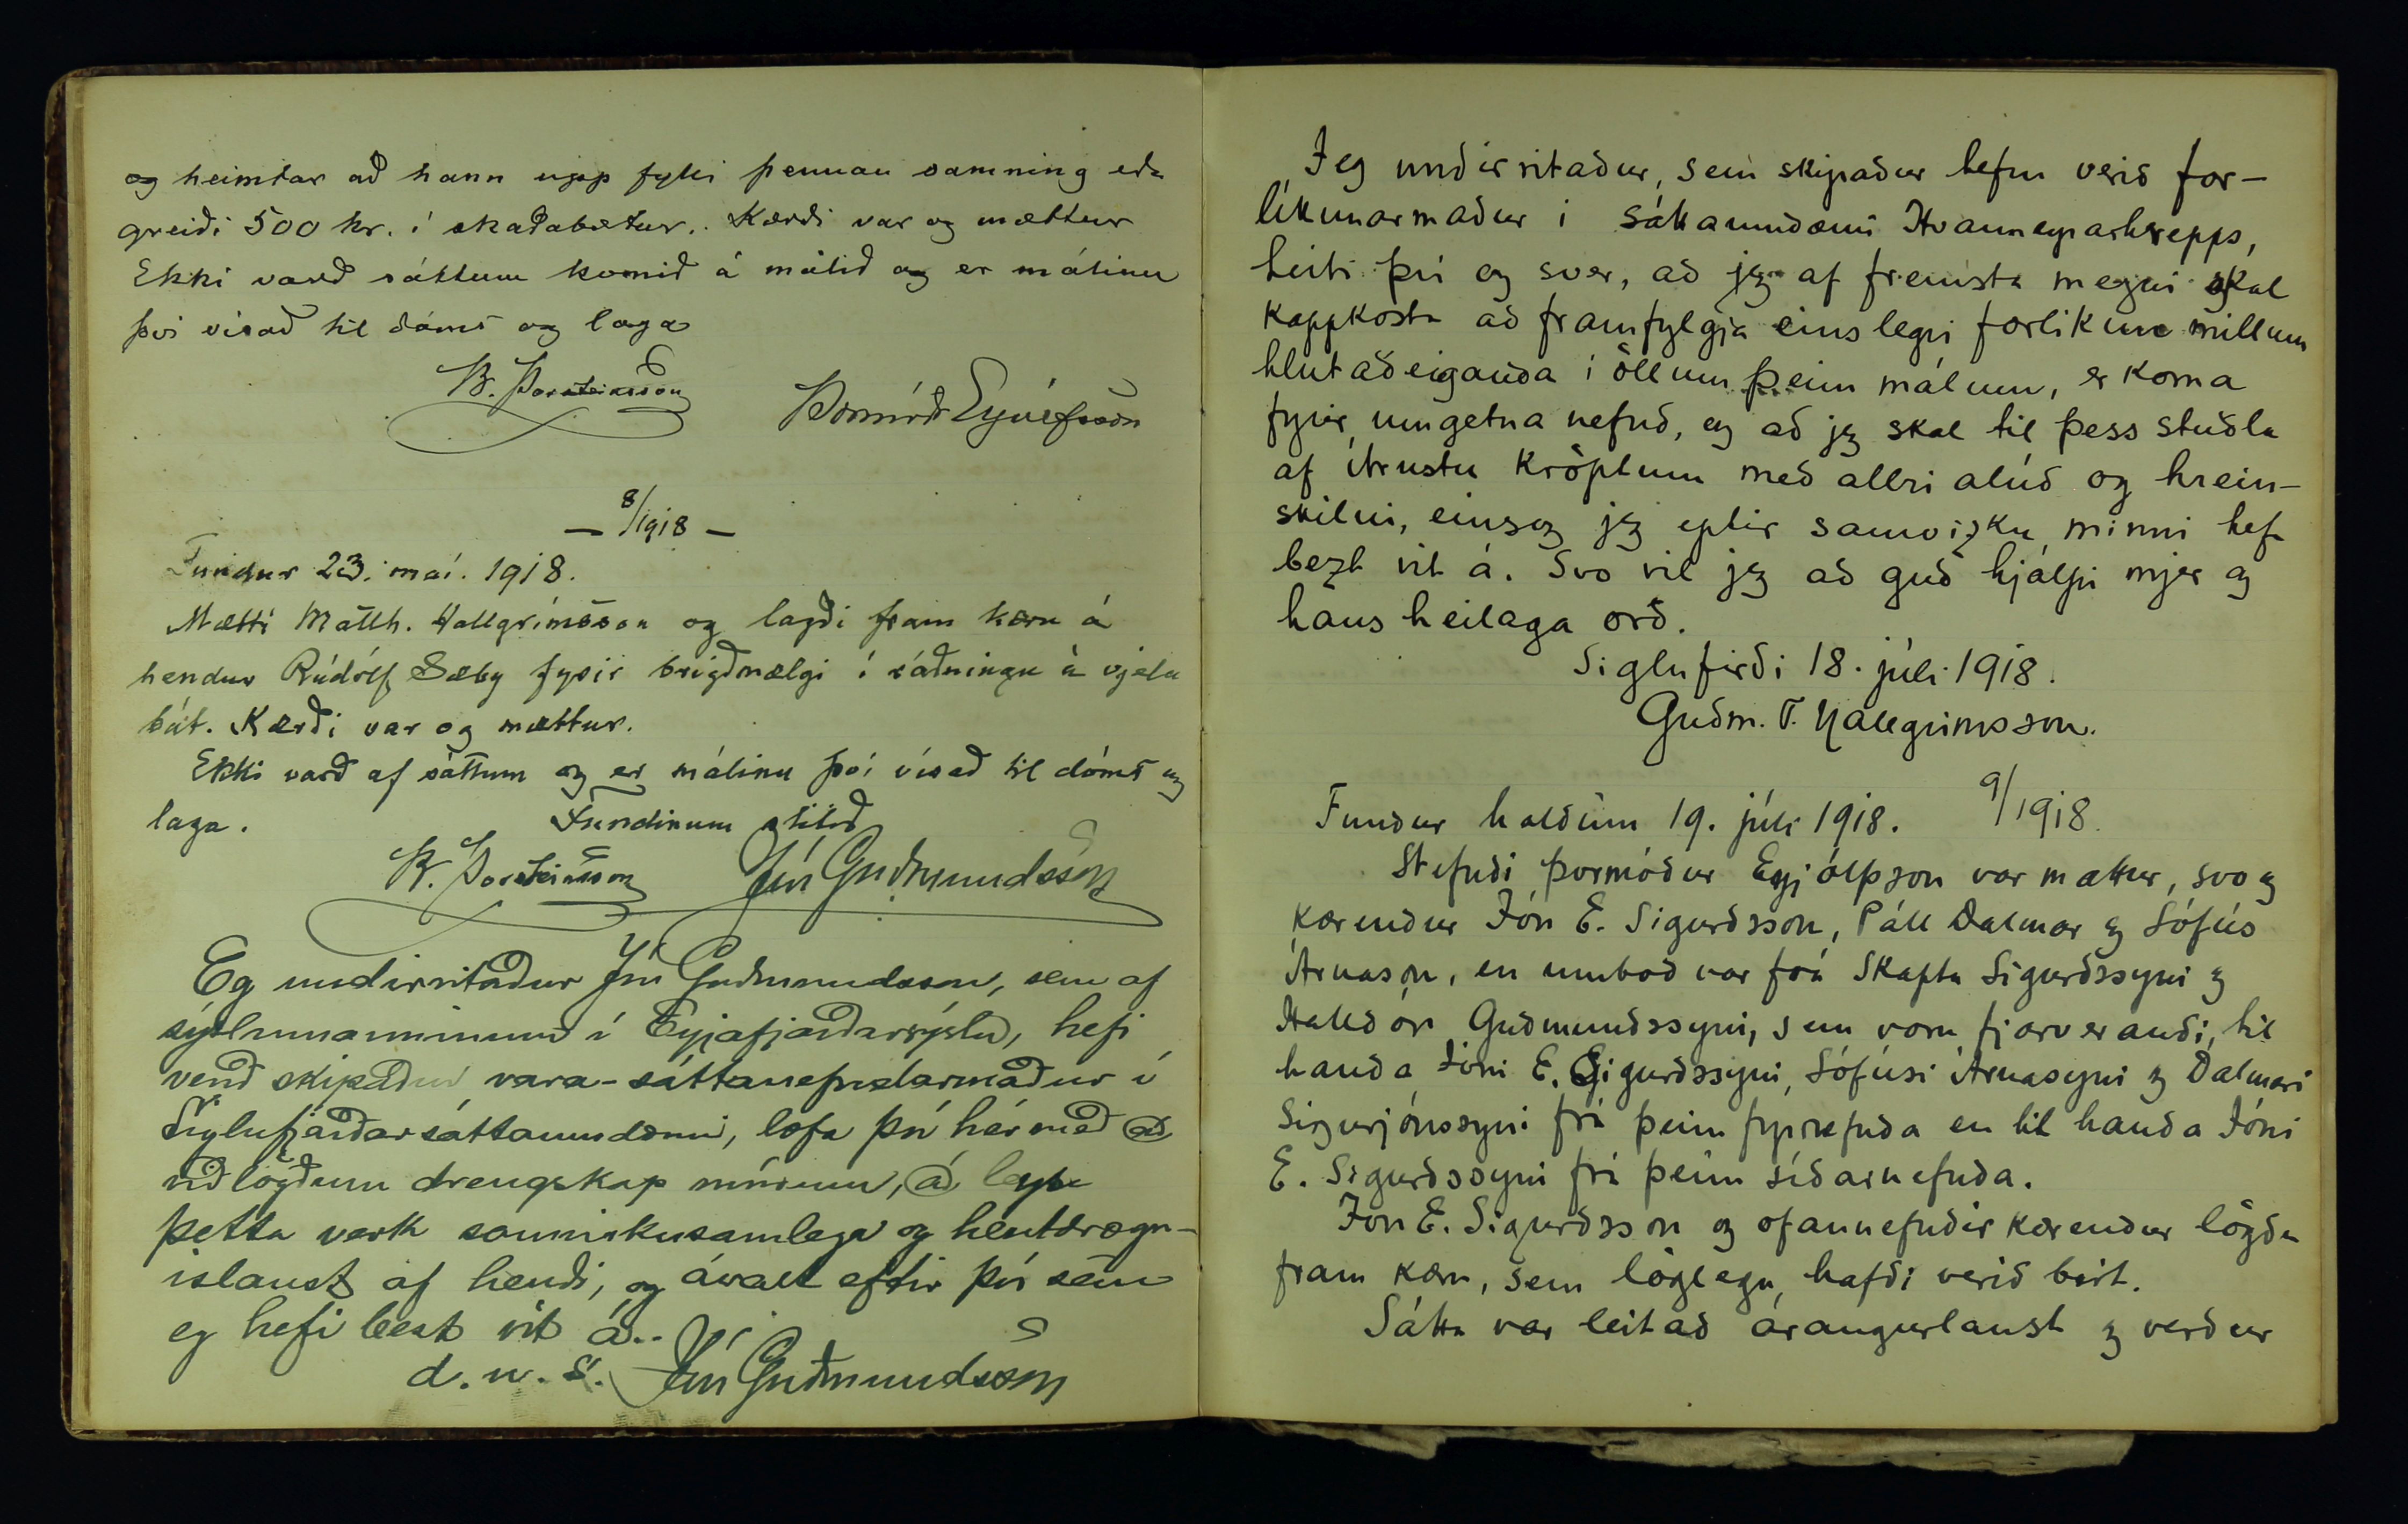 og heimtar að hann upp fylli þennan samning eða
greiði 500 kr. í skaðabætur.. Kærði var og mættur
Ekki varð sáttum komið á málið og er málinu
því vísað til dóms og laga
B. Þorsteinsson Þormóðr Eyólfsson
— 8/1918 —
Fundur 23. maí. 1918.
Mætti Matth. Hallgrímsson og lagði fram kæru á
hendur Rúdólf Sæby fyrir brigðmælgi í ráðningu á vjela
bát. Kærði var og mættur.
Ekki varð af sáttum og er málinu því vísað til dóms og
laga. Fundinum slitið
B. Þorsteinsson Jón Guðmundsson
Eg undirritaður Jón Guðmundsson, sem af
sýslumanninum í Eyjafjarðarsýslu, hefi
verið skipaður vara-sáttanefndarmaður í
Siglufjarðarsáttaumdæmi, lofa því hér með að
viðlögðum drengskap mínum, að leysa
þetta verk samviskusamlega og hlutdrægn-
islaust af hendi, og ávalt eftir því sem
eg hefi best vit á..
d. u. s. Jón Guðmundsson
Jeg undirritaður, sem skipaður hefur verið for-
líkunarmaður i sáttaumdæmi Hvanneyrarhrepps,
heiti því og sver, að jeg af fremsta megni skal
kappkosta að framfylgja einslegri forlikun millum
hlutaðeiganda i öllum þeim málum, er koma
fyrir umgetna nefnd, og að jeg skal til þess stuðla
af ítrustu kröptum með allri alúð og hrein-
skilni, einsog jeg eptir samvizku minni hef
bezt vit á. Svo vil jeg að guð hjálpi mjer og
hans heilaga orð.
Siglufirði 18. júli 1918.
Guðm. T. Hallgrimsson.
9/1918
Fundur haldinn 19. júli 1918.
Stefndi Þormóður Eyjólfsson var mættur, svo og
kærendur Jón E. Sigurðsson, Páll Dalmar og Sófús
Árnason, en umboð var frá Skapta Sigurðssyni og
Halldóri Guðmundssyni, sem voru fjarverandi, til
handa Jóni E. Sigurðssyni, Sófúsi Árnasyni og Dalmari
Sigurjónssyni frá þeim fyrrnefnda en til handa Jóni
E. Sigurðssyni frá þeim síðarnefnda.
Jón E. Sigurðsson og ofannefndir kærendur lögðu
fram kæru, sem löglega hafði verið birt.
Sátta var leitað árangurlaust og verður